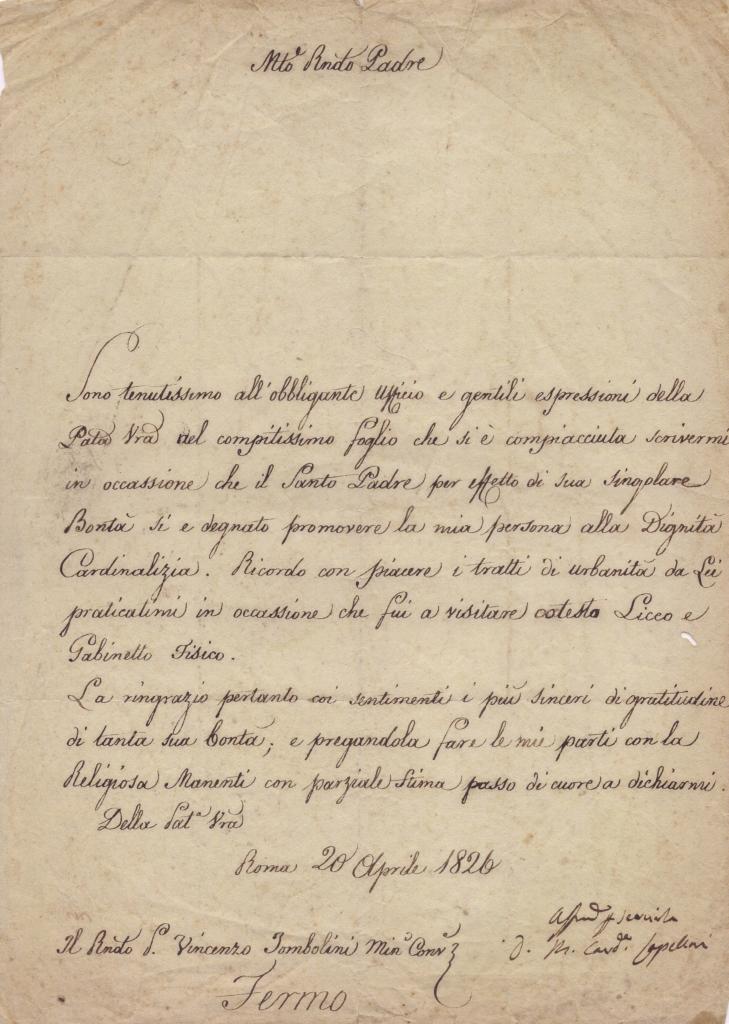 Mto Rndo Padre
Sono tenutissimo all'obbligante Ufficio e gentili espressioni della
Pata Vra nel compitissimo foglio che si è compiacciuta scrivermi
in occassione che il Santo Padre per effetto di sua singolare
Bontà si e degnato promovere la mia persona alla Dignità
Cardinalizia. Ricordo con piacere i tratti di urbanità da Lei
praticatimi in occassione che fui a visitare cotesto Liceo e
Gabinetto Fisico.
La ringrazio pertanto coi sentimenti i più sinceri di gratitudine
di tanta sua bontà; e pregandola fare le mie parti con la
Religiosa Manenti con parziale stima passo di cuore a dichiarmi.
Della Patª Vra
Roma 20 Aprile 1826
D. M. Card. Capellari
Il Rndo P. Vincenzo Tombolini Min. Conv.
Fermo